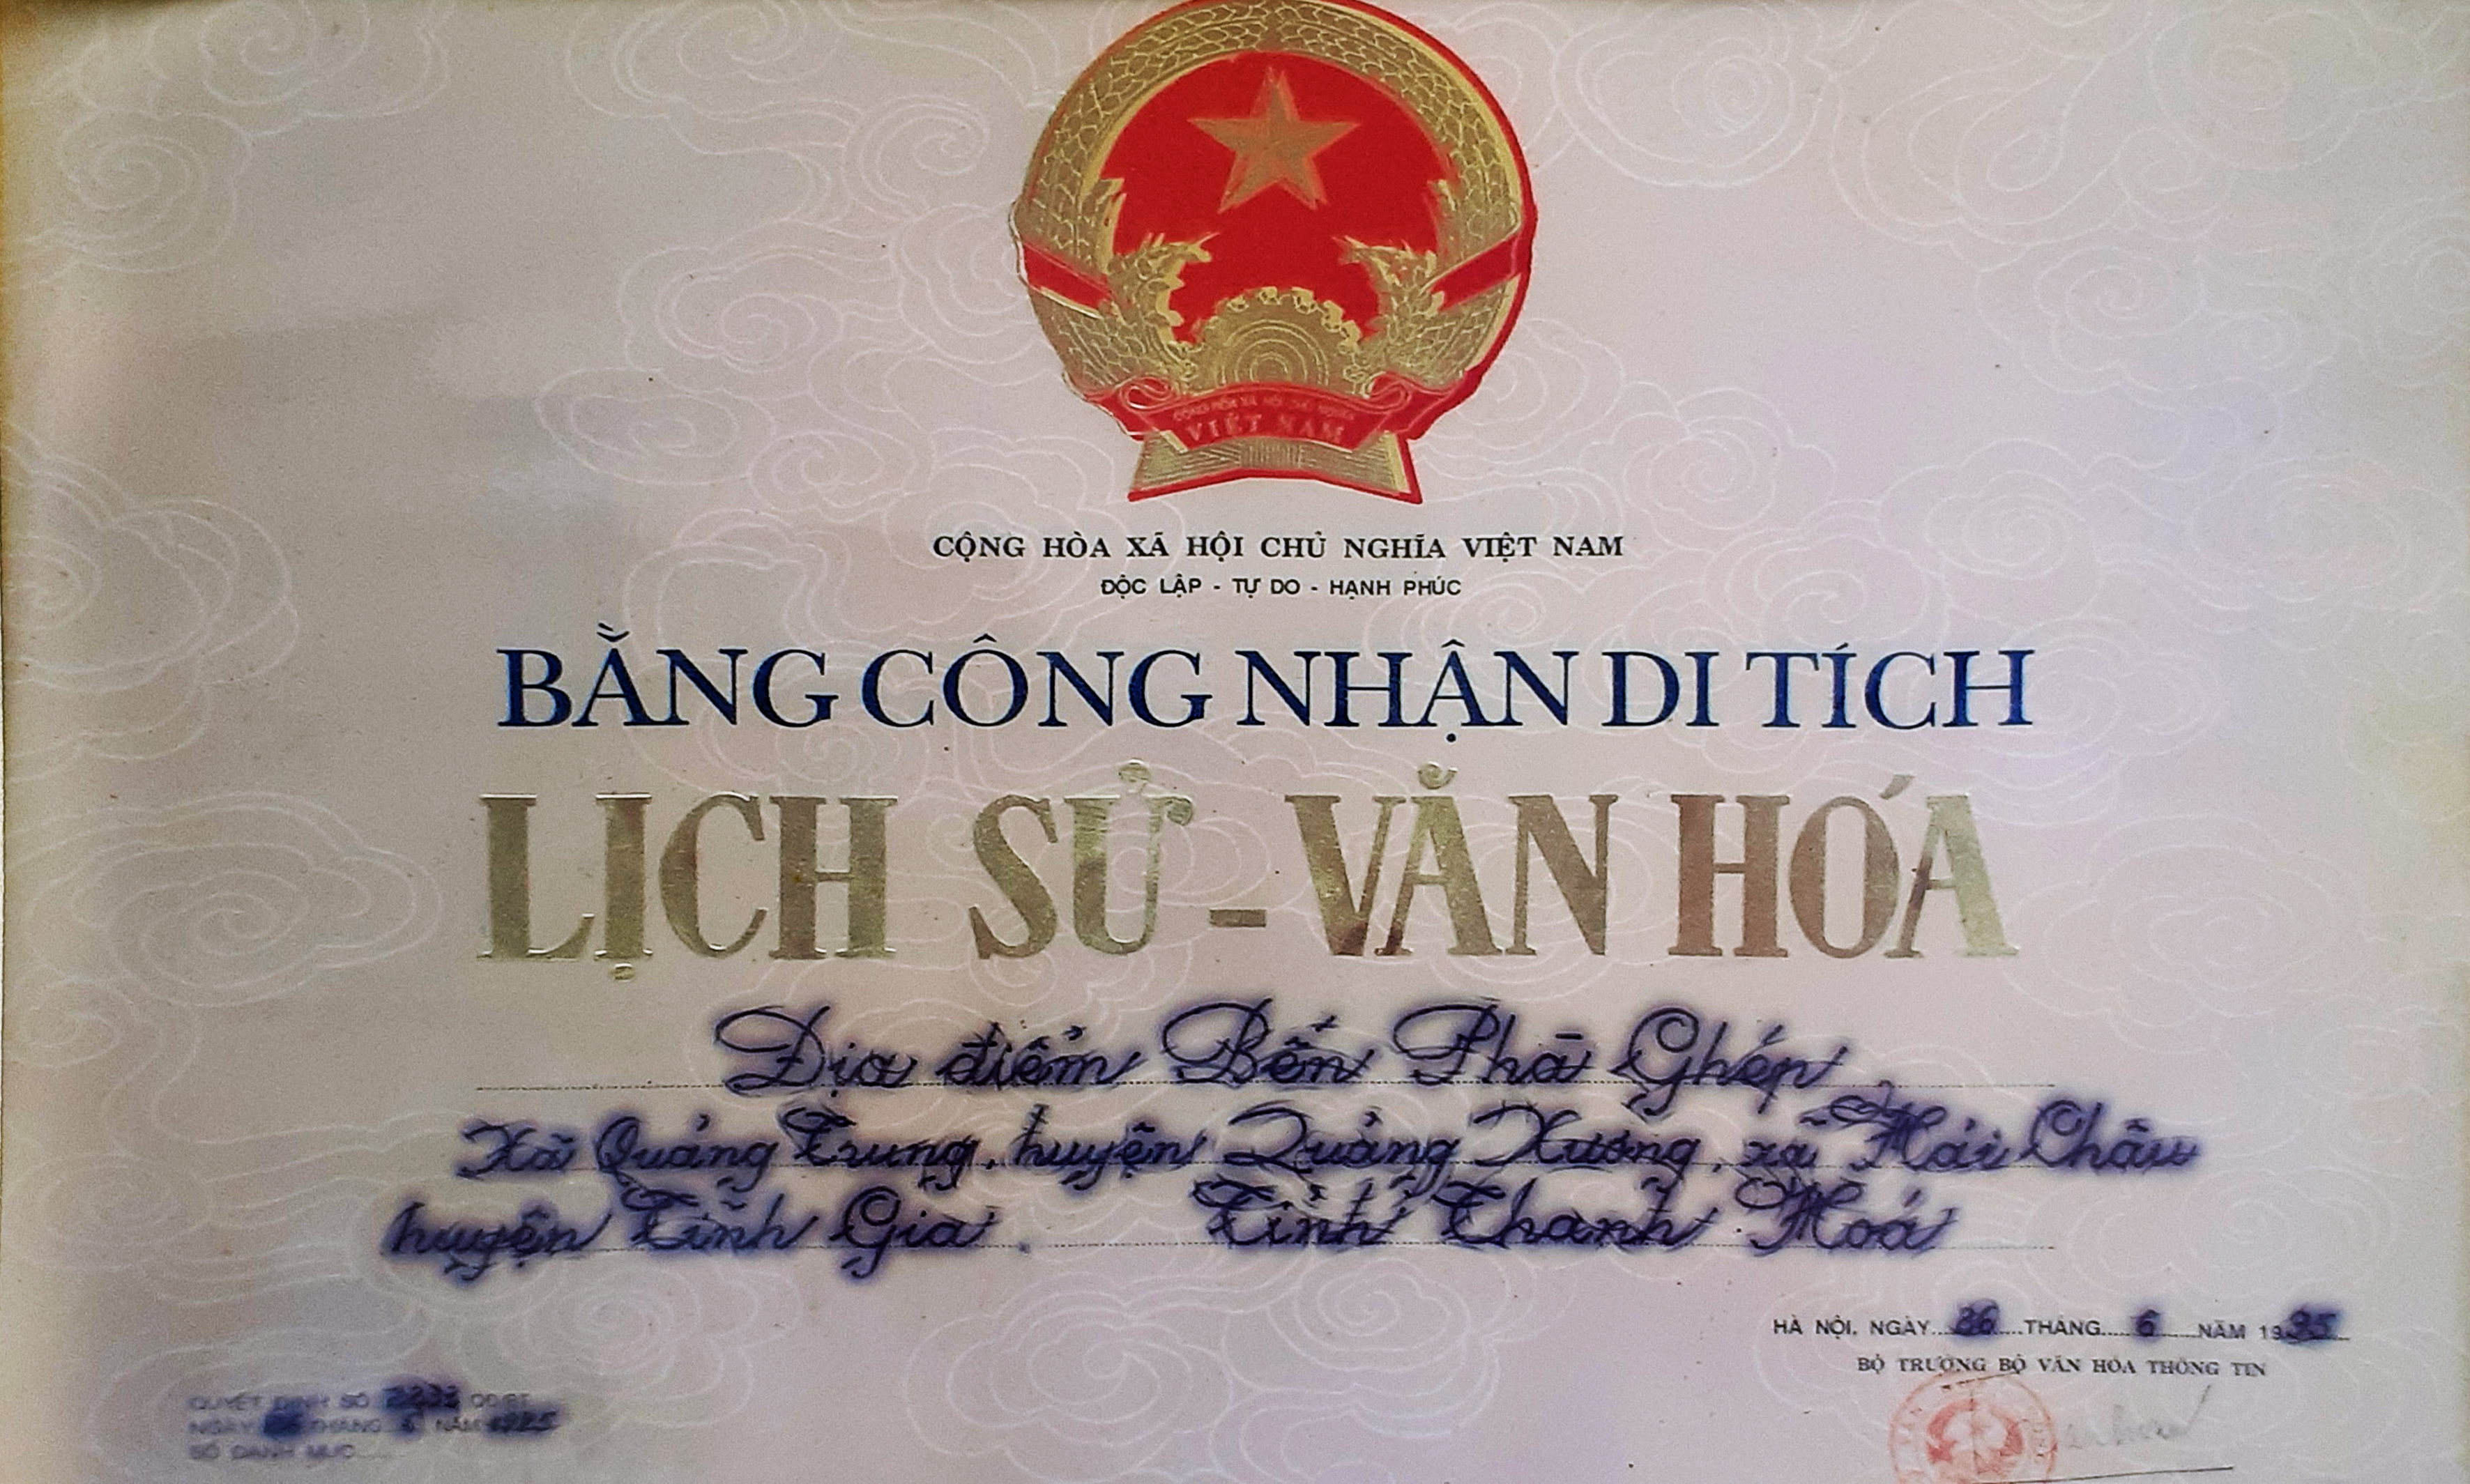 CỘNG HÒA XÃ HỘI CHỦ NGHĨA
VIỆT NAM
CỘNG HÒA XÃ HỘI CHỦ NGHĨA VIỆT NAM
ĐỘC LẬP - TỰ DO - HẠNH PHÚC
BẰNG CÔNG NHẬN DI TÍCH
LỊCH SỬ - VĂN HÓA
Địa điểm Bến Phà Ghép
Xã Quảng Trung, huyện Quảng Xương, xã Hải Châu
huyện Tĩnh Gia. Tỉnh Thanh Hoá
HÀ NỘI, NGÀY 26 THÁNG 6 NĂM 1995
BỘ TRƯỞNG BỘ VĂN HÓA THÔNG TIN
QUYẾT ĐỊNH SỐ QĐ/BT
NGÀY THÁNG 6 NĂM 1995
SỐ DANH MỤC